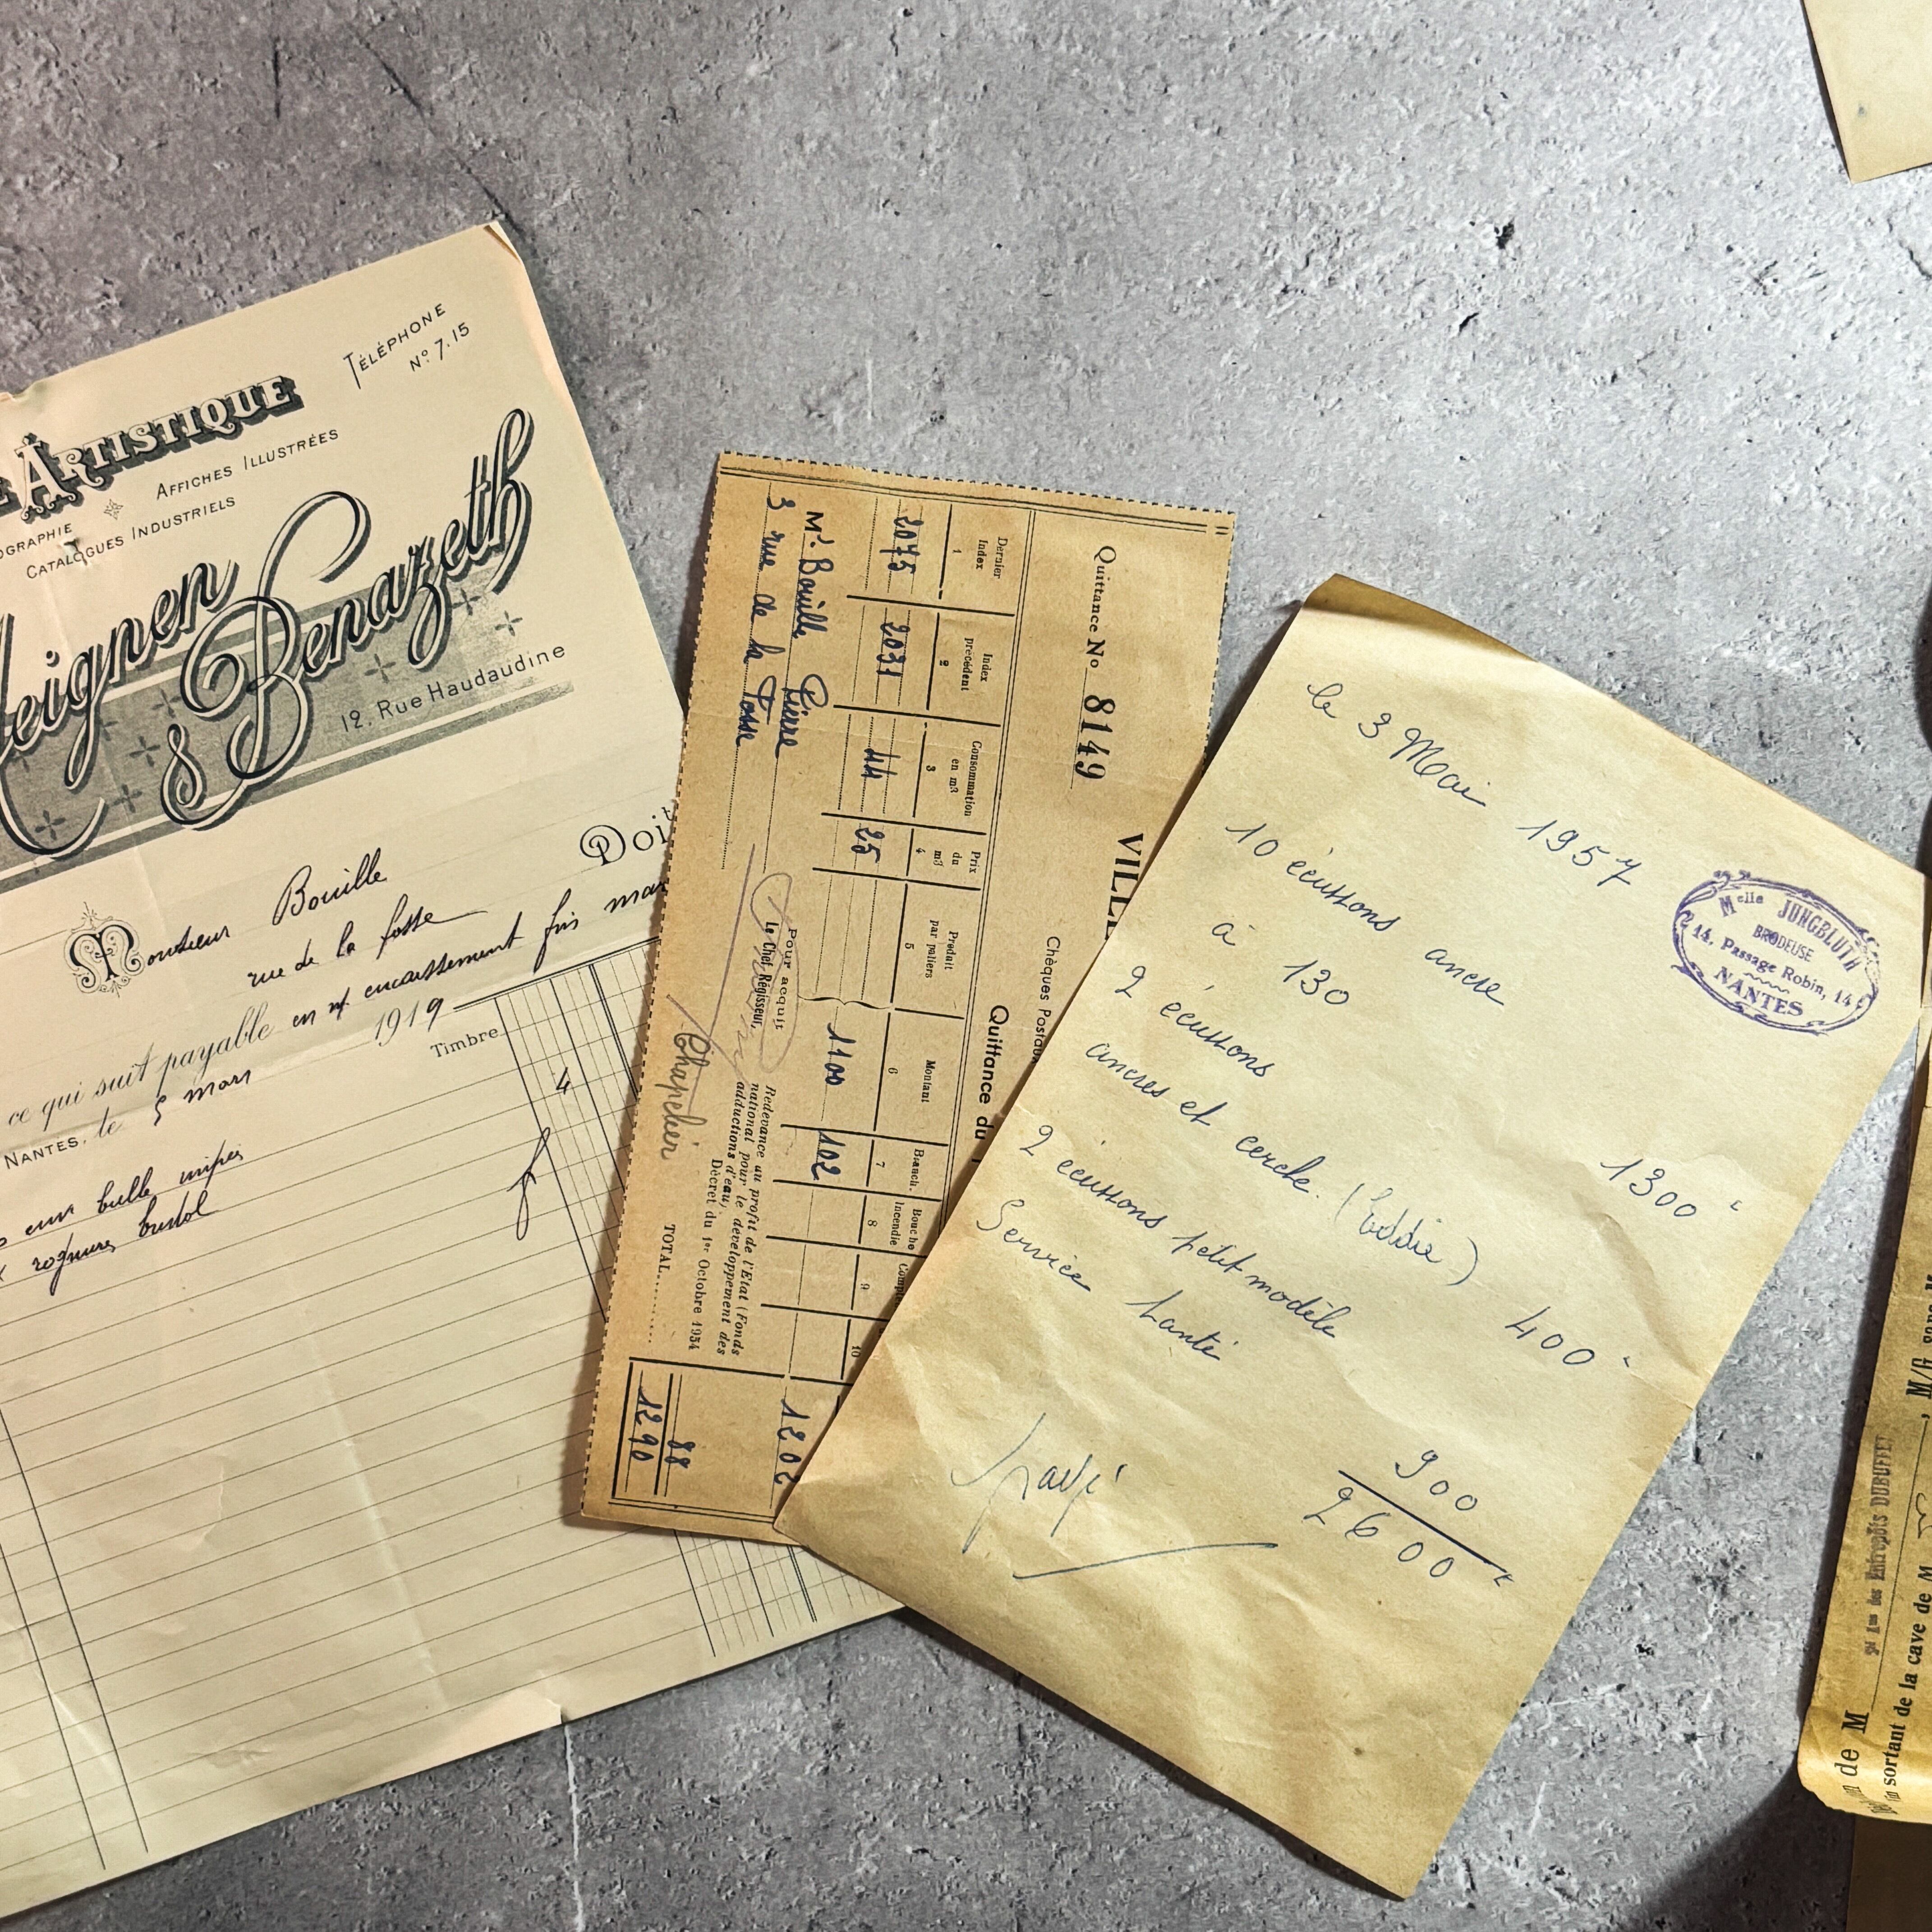 TÉLÉPHONE
No. 7.15
ARTISTIQUE
AFFICHES ILLUSTRÉES
OGRAPHIE
CATALOGUES INDUSTRIELS
eignen
& Benazeth
12. Rue Haudaudine
Doit
Monsieur Bouille
rue de la fosse
ce qui suit payable en encaissement fin mars
NANTES, le 5 mars 1919
Timbre
4
bulle
rognures bristol
Quittance No 8149
VILL
Chèques Postau
Quittance du
Dernier Index
Index précédent
Consommation en m3
Prix du m3
Produit par paliers
Montant
Branch.
Bouche Incendie
Comp
1 2 3 4 5 6 7 8 9 10
2075 2031 44 25 1100 102 1202
Mr. Bouille Pierre
3 rue de la Fosse
Pour acquit
Le Chef Régisseur,
Chapelier
Redevance au profit de l'Etat (Fonds
national pour le développement des
adductions d'eau,
Décret du 1er Octobre 1954
88
TOTAL......
1290
le 3 Mai 1957
Melle JUNGBLUTH
BRODEUSE
14, Passage Robin, 14
NANTES
10 écussons ancre
à 130 1300
2 écussons
ancres et cercle. (Eddie) 400
2 écussons petit modèle
Service Santé 900
2600
payé
M/G
des Entrepôts DUBUFFET
de M
sortant de la cave de M